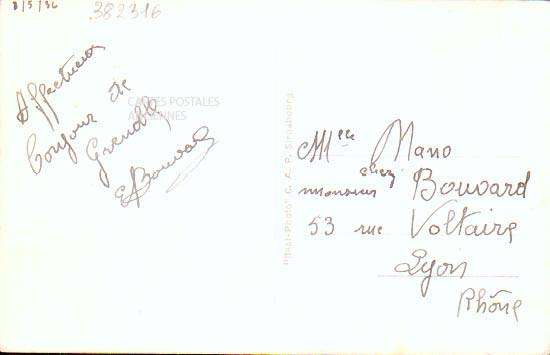 8/5/36
382316
Affectueux
bonjour de
Grenoble
EBouvard
CARTES POSTALES
ANCIENNES
"Real-Photo" C. A. P. Strasbourg
Mlle Mano
chez
monsieur Bouvard
53 rue Voltaire
Lyon
Rhône